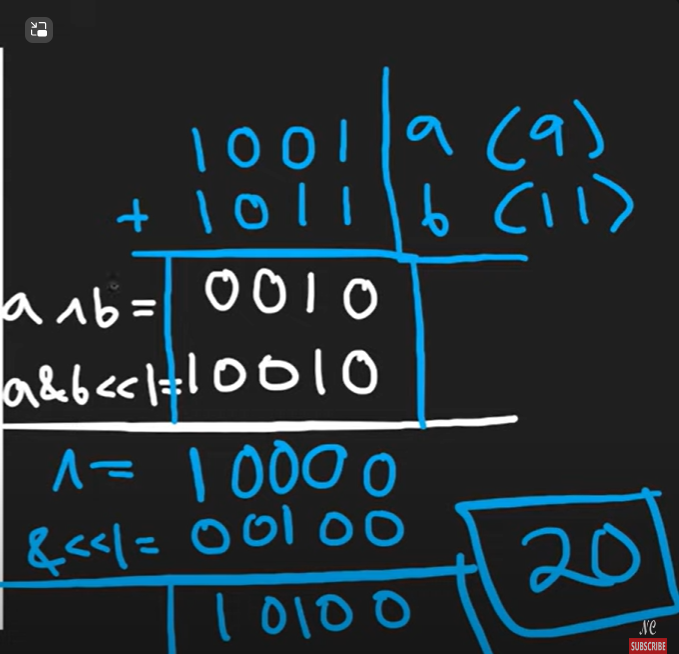 1001 a (9)
+ 1011 b (11)
a ^ b = 0010
a & b << 1 = 10010
^ = 10000
& << 1 = 00100
10100
20
NC
SUBSCRIBE